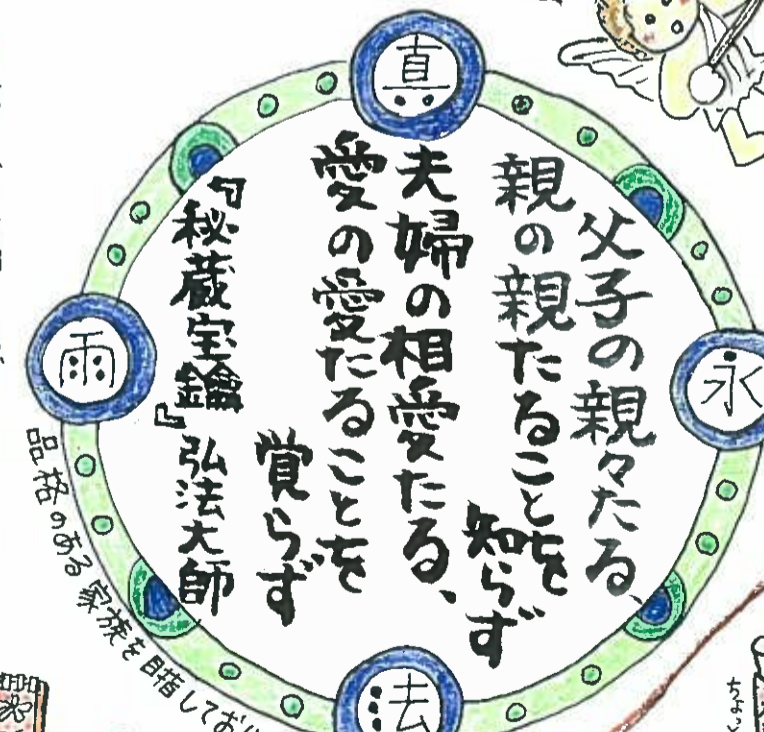 真
永
法
雨
父子の親々たる、
親の親たることを
知らず
夫婦の相愛たる、
愛の愛たることを
覚らず
『秘蔵宝鑰』弘法大師
品格のある家族を目指してお
ちょっと